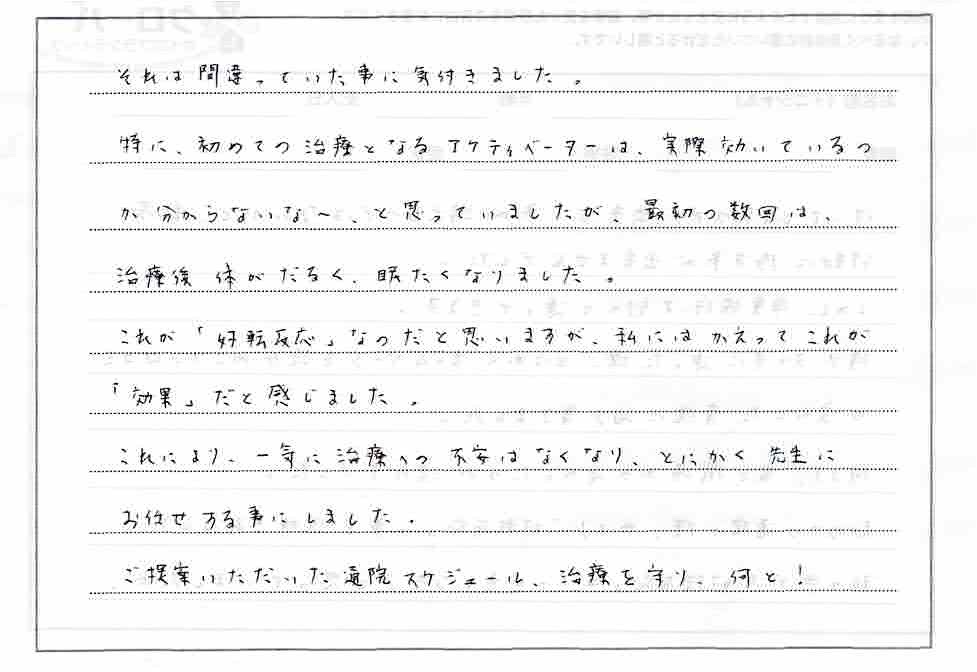 それは間違っていた事に気付きました。
特に、初めての治療となるアクティベーターは、実際効いているの
か分からないな〜、と思っていましたが、最初の数回は、
治療後体がだるく、眠たくなりました。
これが「好転反応」なのだと思いますが、私にはかえってこれが
「効果」だと感じました。
これにより、一気に治療への不安はなくなり、とにかく先生に
お任せする事にしました。
ご提案いただいた通院スケジュール、治療を守り、何と!